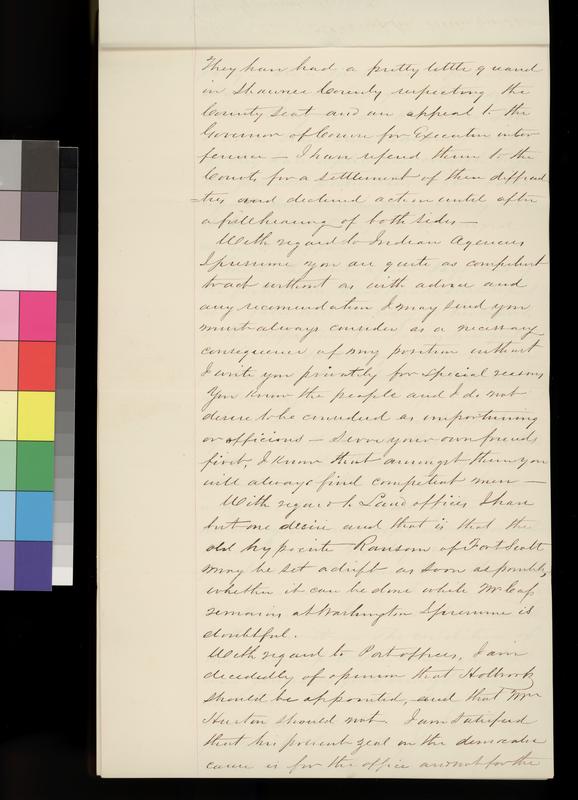 They have had a pretty little quarrel
in Shawnee County respecting the
County Seat and an appeal to the
Governor of Course for Executive inter
ference — I have refered them to the
Courts for a settlement of their difficul
=ties and declined action until after
a full hearing of both sides —
With regard to Indian Agencies
I presume you are quite as competent
to act without as with advice and
any recomendation I may send you
must always consider as a necessary
consequence of my position without
I write you privately for special reasons
You know the people and I do not
desire to be considered as importuning
or officious — Serve your own friends
first, I know that amongst them you
will always find competent men —
With regard to Land offices I have
but one desire and that is that the
old hypocrite Ransom of Fort Scott
may be set adrift as soon as possible,
whether it can be done while Mr Cass
remains at Washington I presume is
doubtful.
With regard to Post offices, I am
decidedly of opinion that Holbrook
should be appointed, and that Mr
Huston should not I am satisfied
that his present zeal in the democratic
cause is for the office and not for the